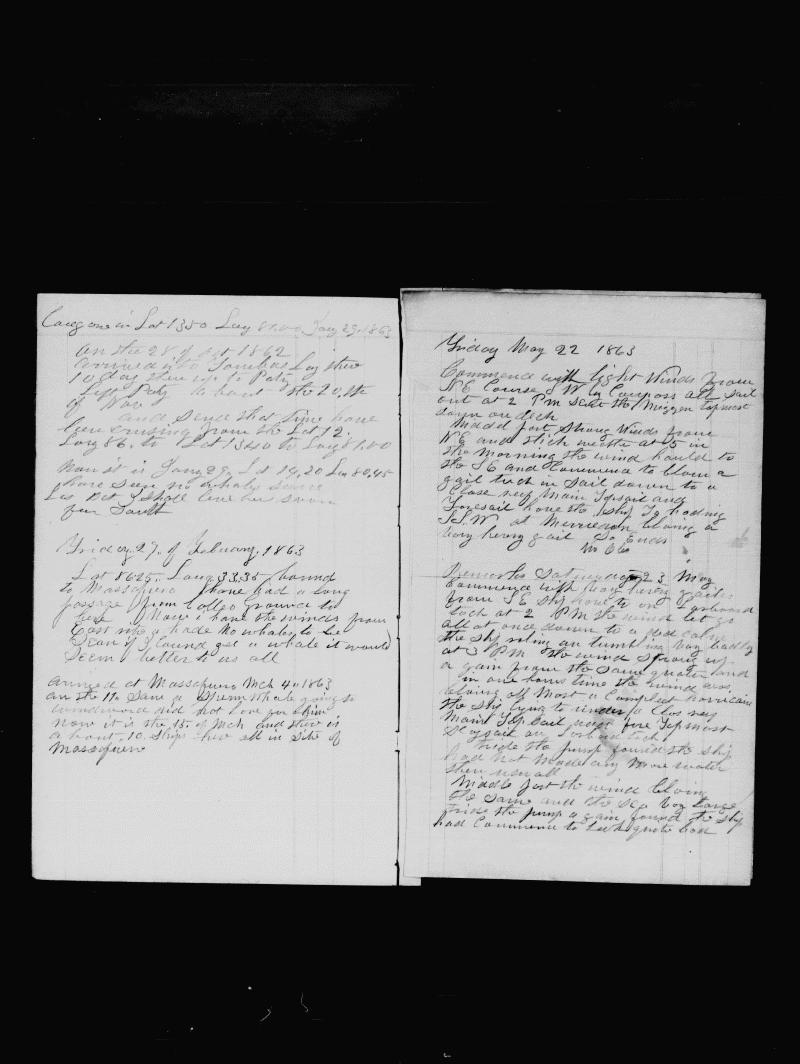 in Lat 1350 Long 81.00 Jany 29. 1863
on the 28 of oct 1862
arrived into Tombas Lay there
10 days then up to Paty
Left Paty about the 20, th
of Nov
and since that time have
been crusing from the Lat 12.
Long 86. to Lat 1340 to Long 81.00
Now it is Jany 29, Lat 14,20 Lon 80,45
have seen no whales since
Las Oct I shall leve her soon
fur South
Friday 27. of February. 1863
Lat 8625. Long 33.35 bound
to Massafuero I have had a long
passage from Collao ground to
here Now I have the winds from
East no whales to be
Sean if I Could get a whale it would
Seem better to us all
arived at Massafuero Mch 4. 1863
on the 11. Saw a Sperm Whale going to
windward did not Love for him
now it is the 15. of Mch and there is
about 10. Ships her all in Site of
Massafuero
Friday May 22 1863
Commence with light Winds from
NE Course S W by Compass all Sail
out at 2 Pm Sent the Mizzen topmast
down on deck
Middel part Strong Winds from
NE and thick wethe at 5 in
the morning the wind hauld to
the SE and Commence to blow a
gail took in Sail down to a
Close reef Main Topsail and
Foresail hove the Ship To heding
S.S.W. at Merredian bloing a
very hevey gail So Ends
Remarks Saturday 23 May
Commence with hevey gailes
from SE Ship hove to on Larboard
tack at 2 PM the wind let go
all at once down to a ded calm
the Ship roling an tumbling vay badly
at 3 PM the wind Sprung up
a gain from the Same quater and
in one hours time the wind was
bloing off Most a Compleet horricain
the Ship lying to under a Clos reef
Main Top Sail and fore Topmost
Stagsail on Larboard tack
tride the pump found the Ship
had not Made any more water
then usuall
Middle part the wind bloing
the Same and the Sea vay Large
tride the pump a gain found the Ship
had Commence to Leek quite bad